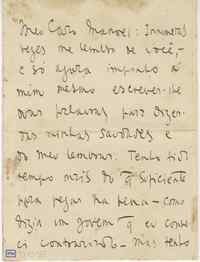 Meu Caro Manoel: Inumeras
vezes me lembro de você,
e só agora imponho a
mim mesmo escrever-lhe
duas palavras para dizer-
das minhas saudades e
do meu lembrar. Tenho tido
tempo mais do q̃ suficiente
para pegar na pena - como
dizia um jovem q̃ eu conhe-
ci contrariado - mas tenho